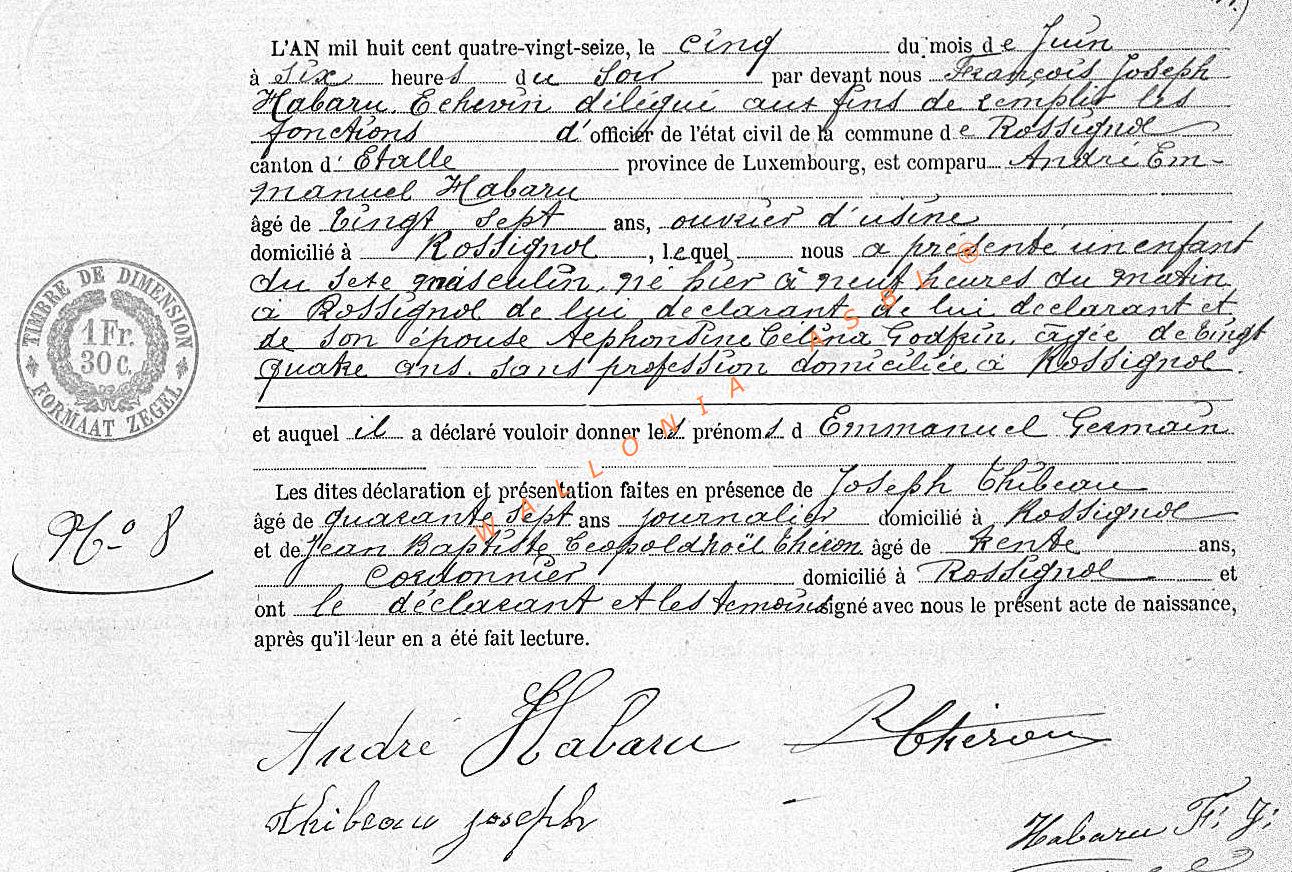 L'AN mil huit cent quatre-vingt-seize, le cinq du mois de Juin
à six heures du soir par devant nous François Joseph
Habaru, Echevin délégué aux fins de remplir les
fonctions d'officier de l'état civil de la commune de Rossignol
canton d'Etalle province de Luxembourg, est comparu André Em-
manuel Habaru
âgé de vingt sept ans, ouvrier d'usine
domicilié à Rossignol, lequel nous a présenté un enfant
du sexe masculin, né hier à neuf heures du matin
à Rossignol de lui déclarant, de lui déclarant et
de son épouse Célina Godfrin, âgée de vingt
quatre ans, sans profession domiciliée à Rossignol.
et auquel il a déclaré vouloir donner les prénoms d Emmanuel Germain
Les dites déclaration et présentation faites en présence de Joseph Thibeau
âgé de quarante sept ans journalier domicilié à Rossignol
et de Jean Baptiste Théron âgé de trente ans,
cordonnier domicilié à Rossignol et
ont le déclarant et les témoins signé avec nous le présent acte de naissance,
après qu'il leur en a été fait lecture.
TIMBRE DE DIMENSION
1 Fr.
30 C.
FORMAAT ZEGEL
No 8
WALLONIA ASBL ®
André Habaru
Théron
Thibeau joseph
Habaru F. J.